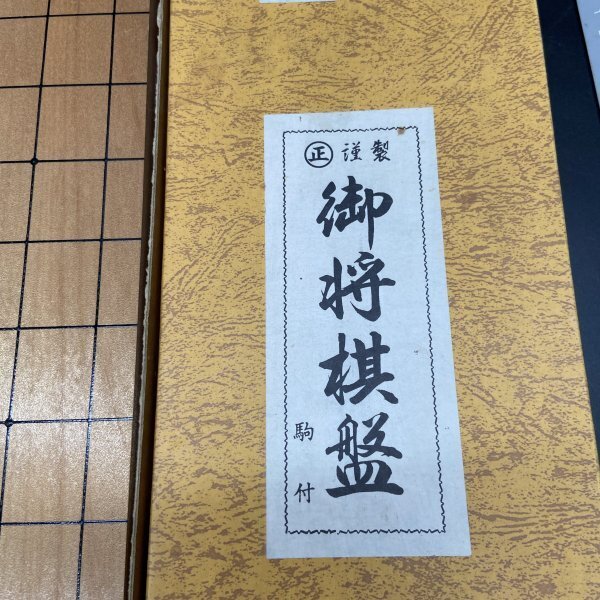 ㊣謹製
御将棋盤
駒付